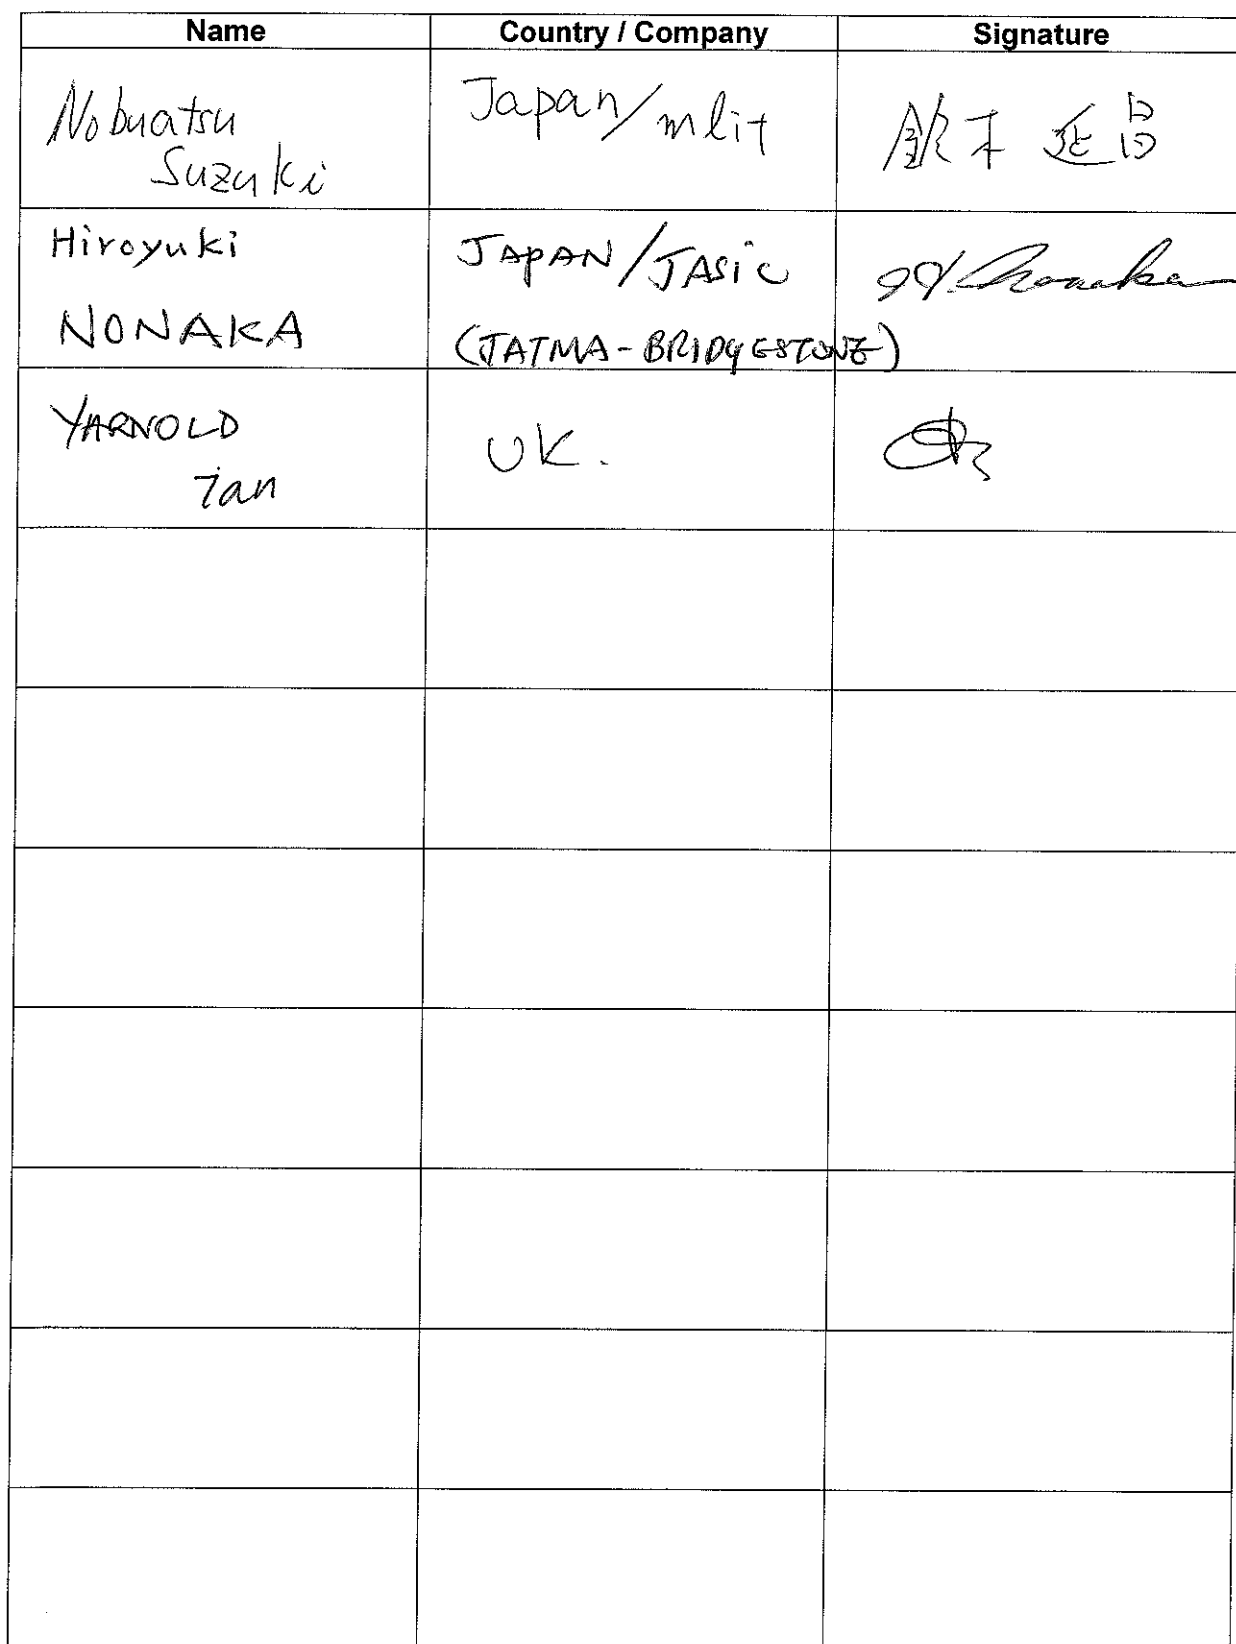 Name Country / Company Signature
Nobuatsu
Suzuki
Japan/mlit
鈴木 延昌
Hiroyuki
NONAKA
JAPAN/JASiC
(JATMA-BRIDGESTONE)
YARNOLD
Ian
UK.